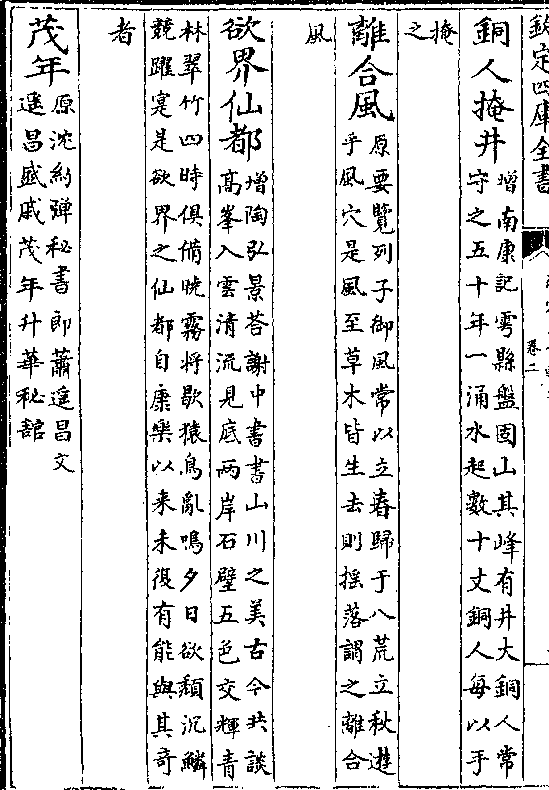 欽定四庫全書
卷二
銅人掩井
增南康記雩縣盤固山其峰有井大銅人常
守之五十年一涌水起數十丈銅人每以手
掩
之
離合風
原要覽列子御風常以立春歸于八荒立秋遊
乎風穴是風至草木皆生去則揺落謂之離合
風
欲界仙都
增陶弘景荅謝中書書山川之美古今共談
高峯入雲清流見底兩岸石壁五色交輝青
林翠竹四時俱備曉霧將歇猿鳥亂鳴夕日欲頽沉鱗
競躍寔是欲界之仙都自康樂以来未復有能與其竒
者
茂年
原沈約彈秘書郎蕭遥昌文
遥昌盛戚茂年升華秘舘